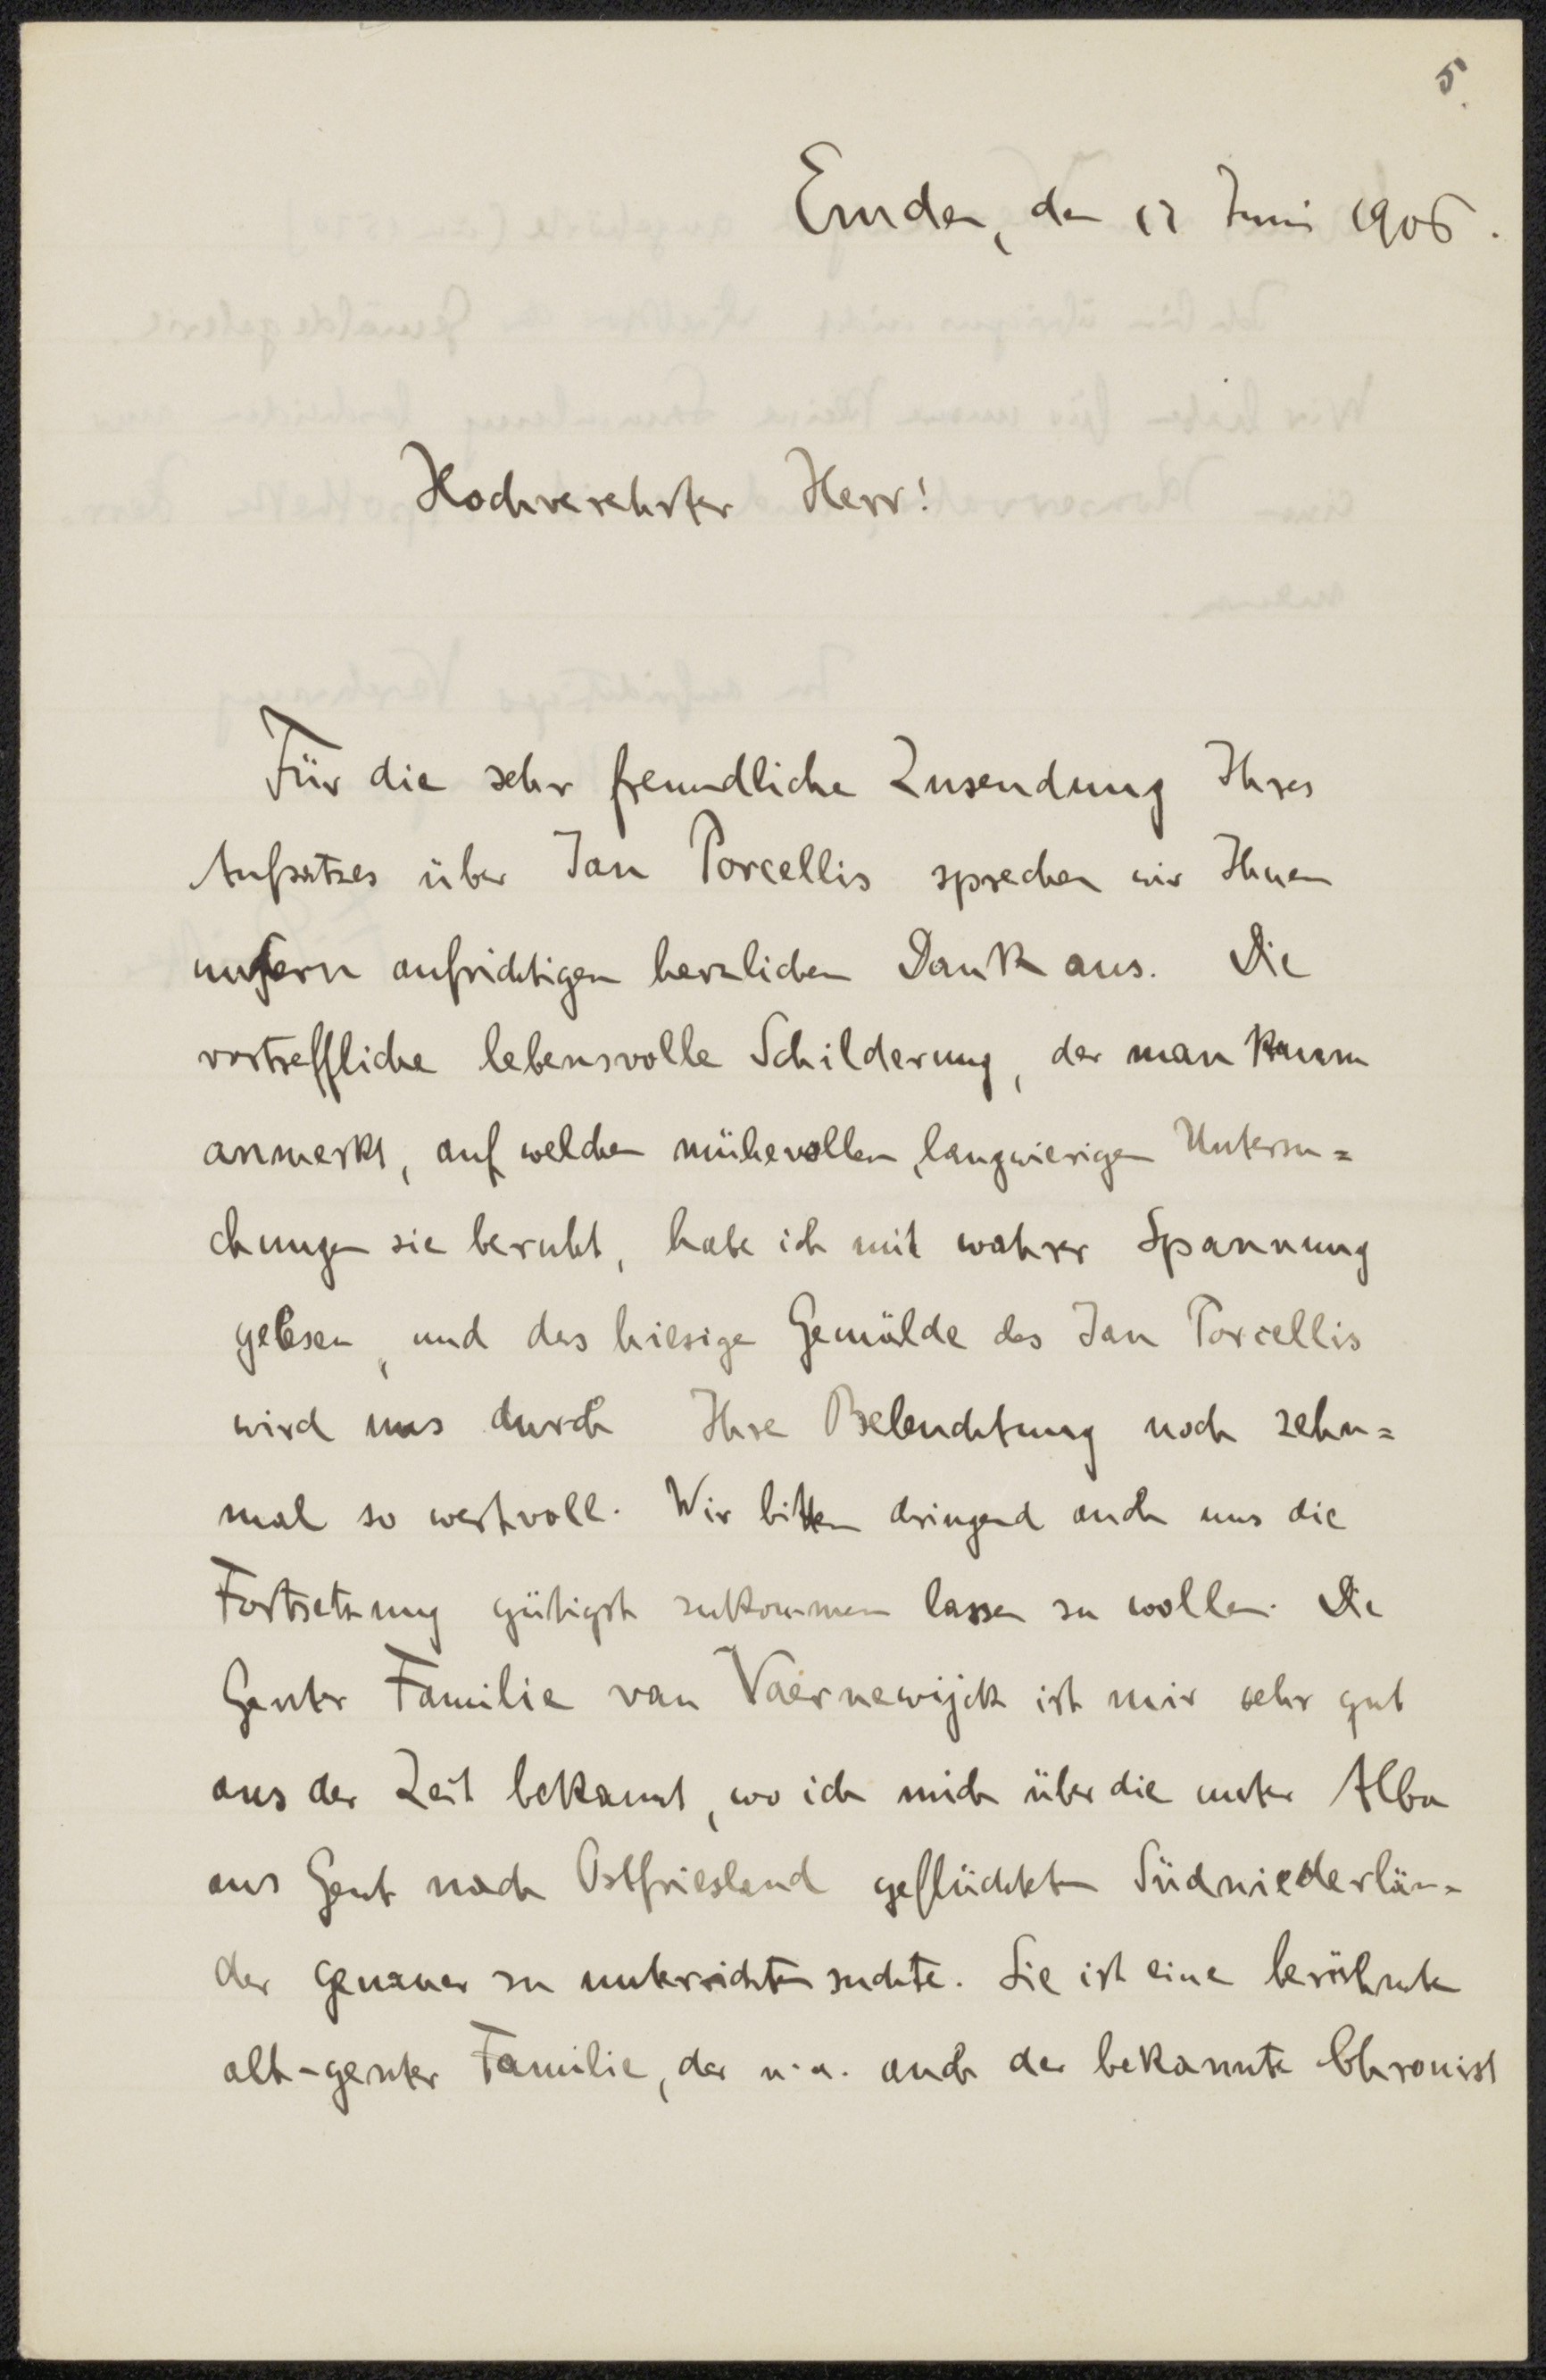 5.
Emden, den 12 Juni 1906.
Hochverehrter Herr!
Für die sehr freundliche Zusendung Ihres
Aufsatzes über Jan Porcellis sprechen wir Ihnen
unsern aufrichtigen herzlichen Dank aus. Die
vortreffliche lebensvolle Schilderung, der man kaum
anmerkt, auf welchen mühevollen, langwierigen Untersu=
chungen sie beruht, habe ich mit wahrer Spannung
gelesen, und das hiesige Gemälde des Jan Porcellis
wird uns durch Ihre Beleuchtung noch zehn=
mal so wertvoll. Wir bitten dringend auch uns die
Fortsetzung gütigst zukommen lassen zu wollen. Die
Genter Familie van Vaernewijck ist mir sehr gut
aus der Zeit bekannt, wo ich mich über die unter Alba
aus Gent nach Ostfriesland geflüchteten Südniederlän-
der genauer zu unterrichten suchte. Sie ist eine berühmte
alt-genter Familie, der u. a. auch der bekannte Chronist